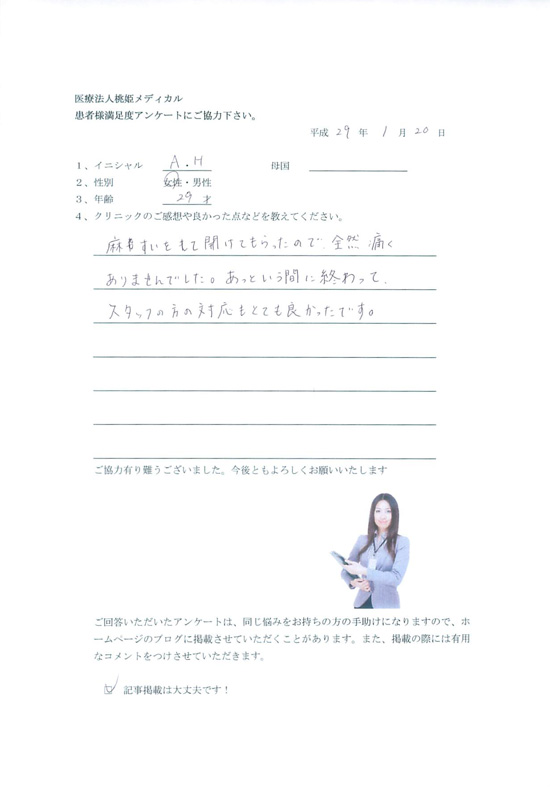 医療法人桃姫メディカル
患者様満足度アンケートにご協力下さい。
平成 29 年 1 月 20 日
1、イニシャル A・H 母国
2、性別 女性・男性
3、年齢 29才
4、クリニックのご感想や良かった点などを教えてください。
開けてもらったので、全然痛く
ありませんでした。あっという間に終わって、
スタッフの方の対応もとても良かったです。
ご協力有り難うございました。今後ともよろしくお願いいたします
ご回答いただいたアンケートは、同じ悩みをお持ちの方の手助けになりますので、ホ
ームページのブログに掲載させていただくことがあります。また、掲載の際には有用
なコメントをつけさせていただきます。
☑ 記事掲載は大丈夫です！